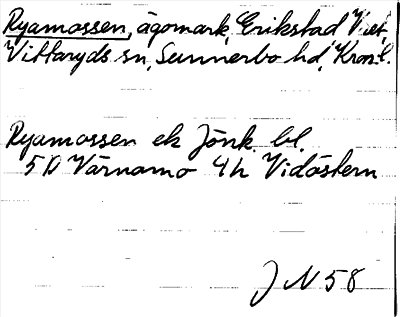 Ryamossen, ägomark, Erikstad Väst,
Vittaryds sn, Sunnerbo hd, Kron. l.
Ryamossen ek Jönk. bl.
5 D Värnamo 4 h Vidöstern
J N 58